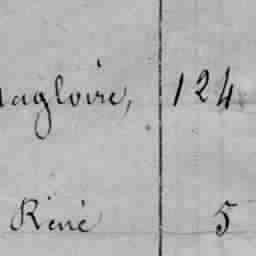 Magloire, 124
René 5